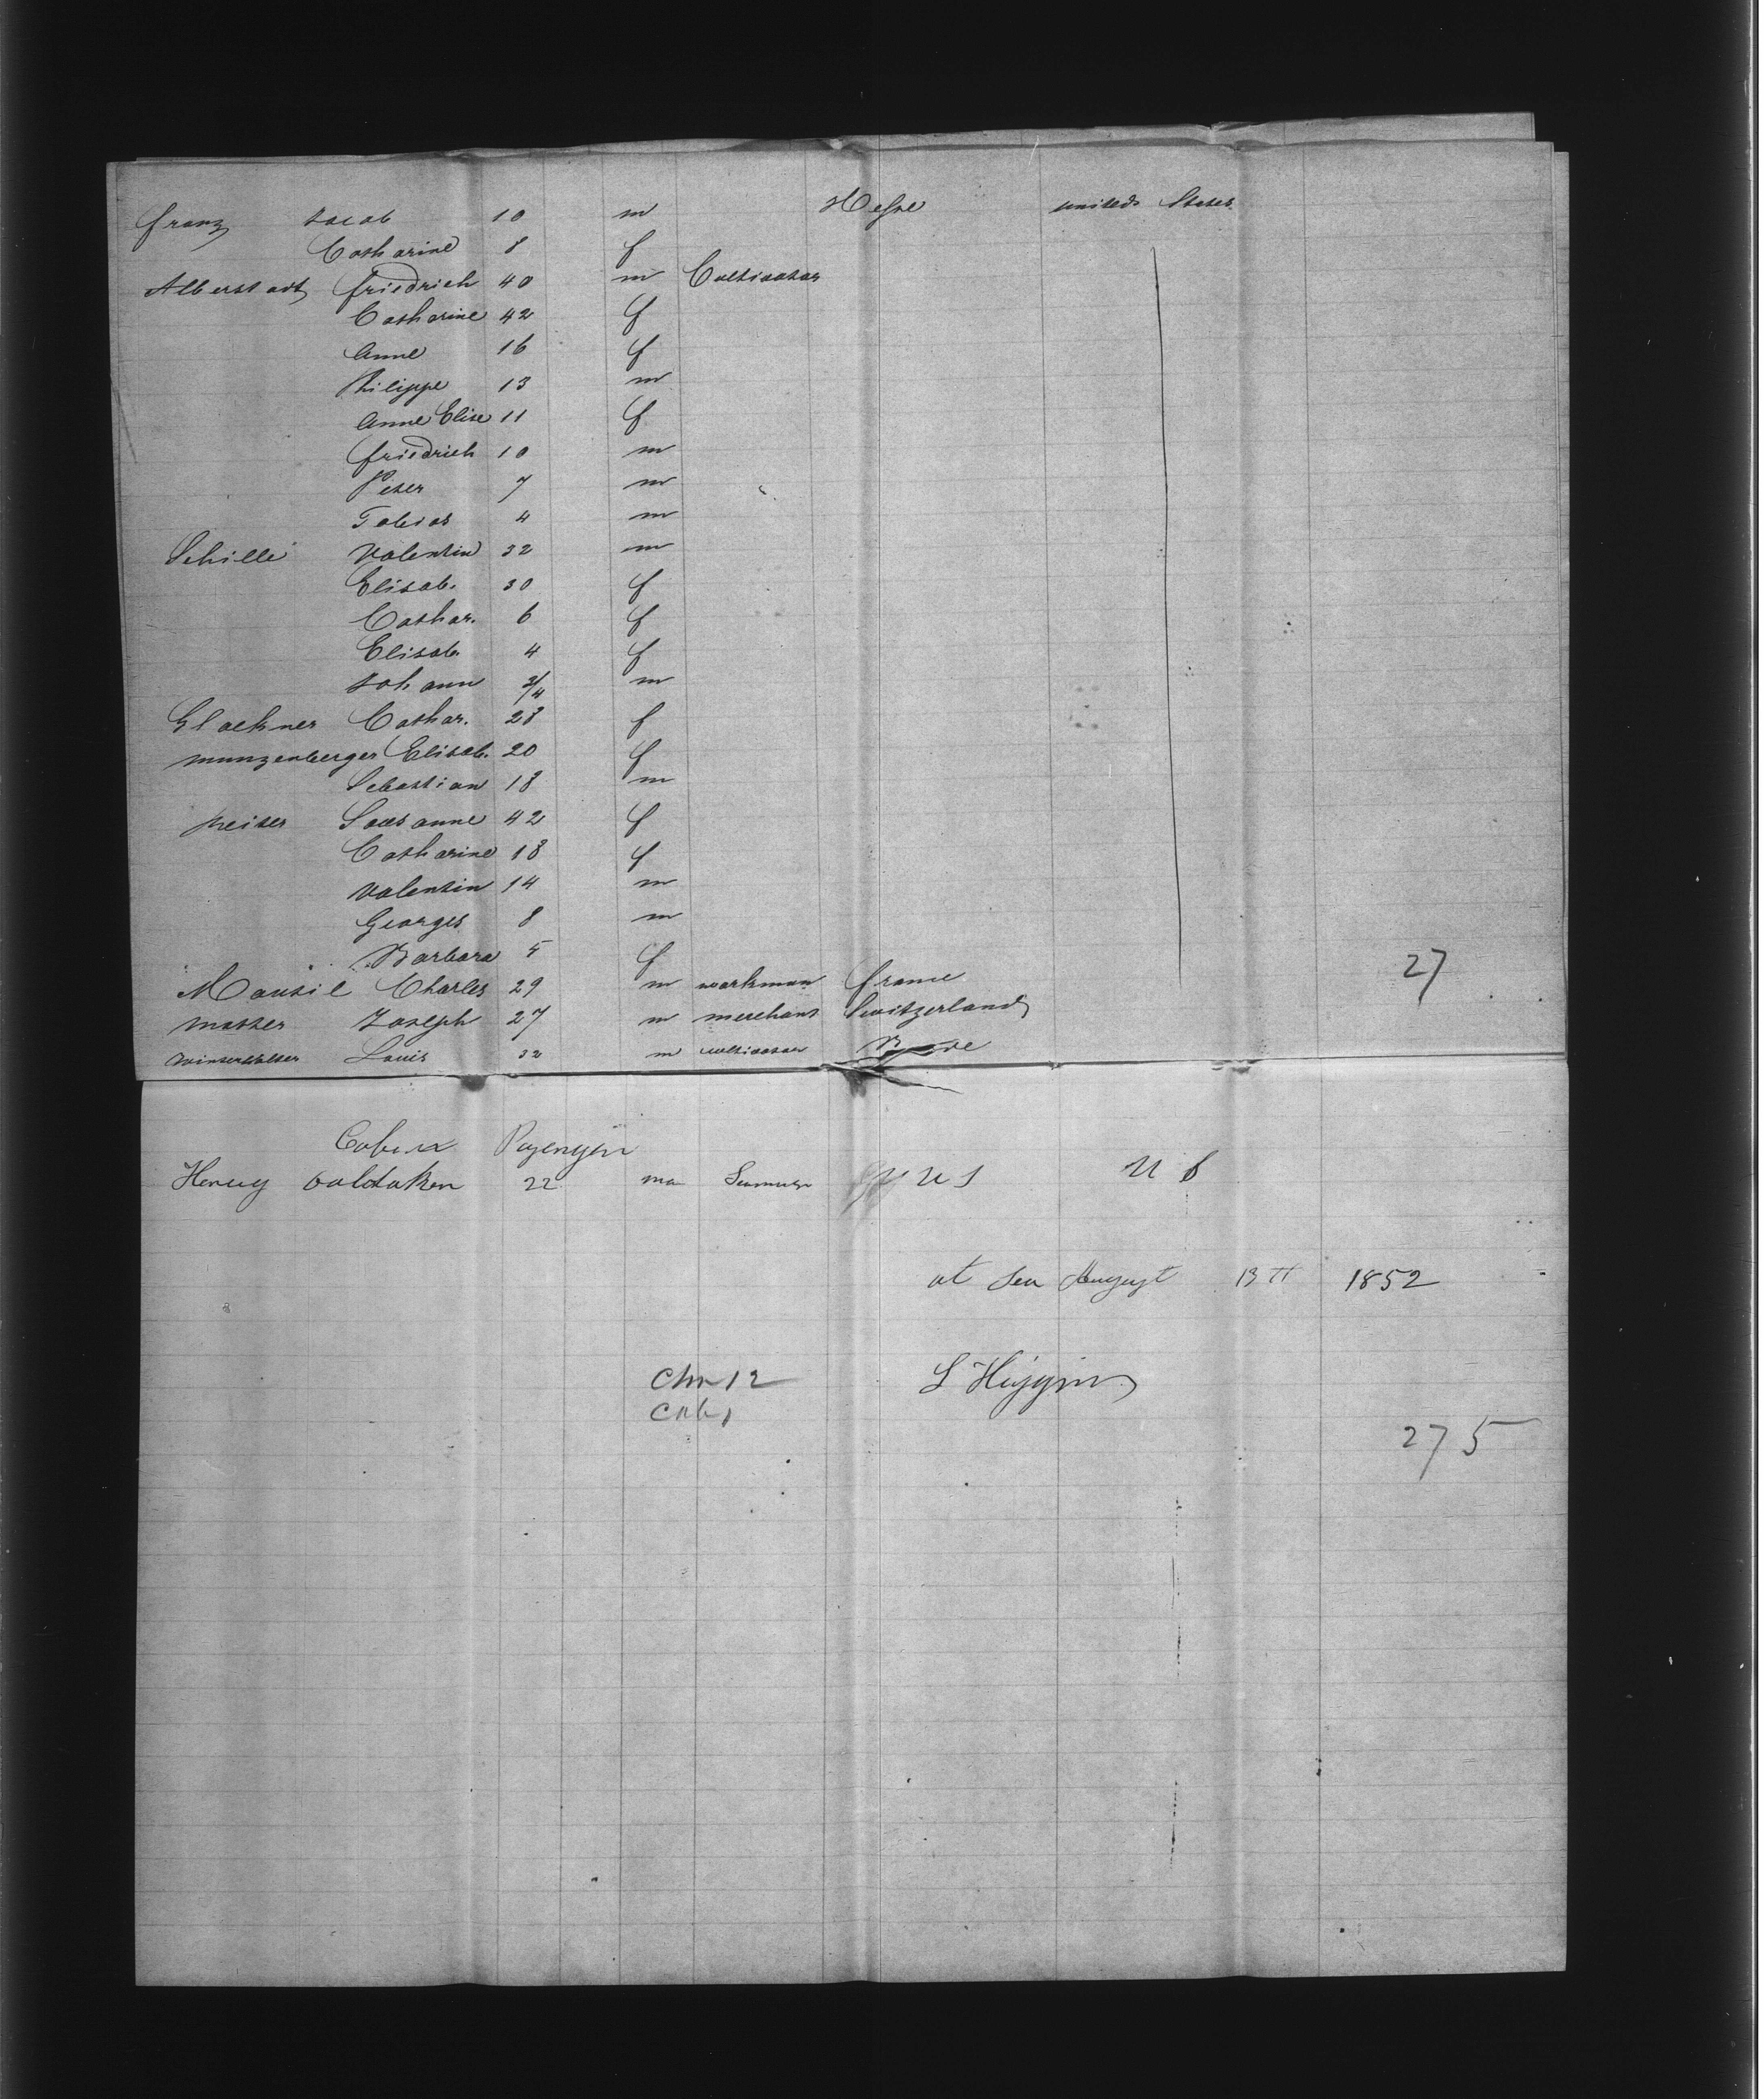 Franz Jacob 10 m Hesse united States
Catharine 8 f
Alberstadt Friedrich 40 m Cultivator
Catharine 42 f
Anne 16 f
Philippe 13 m
Anne Elise 11 f
Friedrich 10 m
Peter 7 m
Tobias 4 m
Schille Valentin 32 m
Elisab. 30 f
Cathar. 6 f
Elisab. 4 f
Johann 3/4 m
Glockner Cathar. 28 f
Munzenberger Elisab. 20 f
Sebastian 18 m
Susanne 42 f
Catharine 18 f
Valentin 14 m
Georges 8 m
Barbara 5 f 27
Charles 29 m workman France
Joseph 27 m merchant Switzerland
Winterhalter Louis 32 m cultivator
Cabin
Henry 22 U S
at Sea August 13th 1852
Chn 12 L Higgins
Cab 1
275